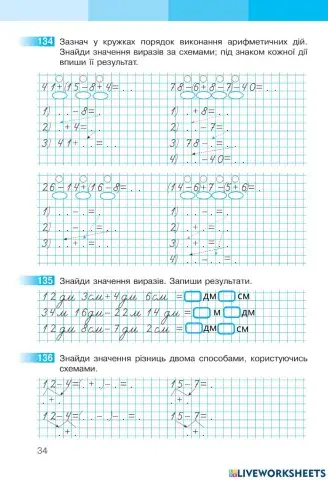 134 Зазнач у кружках порядок виконання арифметичних дій.
Знайди значення виразів за схемами; під знаком кожної дії
впиши її результат.
41+(15-8+4= . .
78-6+8-7-40= . .
1) . . -8= .
1) . +8= . .
2) . +4= . .
2) . . -7= .
3) 41+ . . = . .
3) 78- . = . .
4) . . -40= . .
26-14+(16-8= . .
(14-6+7-5+6= . .
1) . . - . . = .
1) . . - . = .
2) . . - . . = . .
2) . + . = . .
3) . . + . = . .
3) . + . = . .
4) . . - . . = .
135 Знайди значення виразів. Запиши результати.
12 дм 3см+4дм 6см = дм см
34м 16дм-22м 14дм = м дм
12дм 8см-7дм 2см = дм см
136 Знайди значення різниць двома способами, користуючись
схемами.
12-4=( . + . )- . = .
15-7= .
. + .
. + .
12-4=( . . - . )- . = .
15-7= .
. + .
. + .
34
LIVEWORKSHEETS